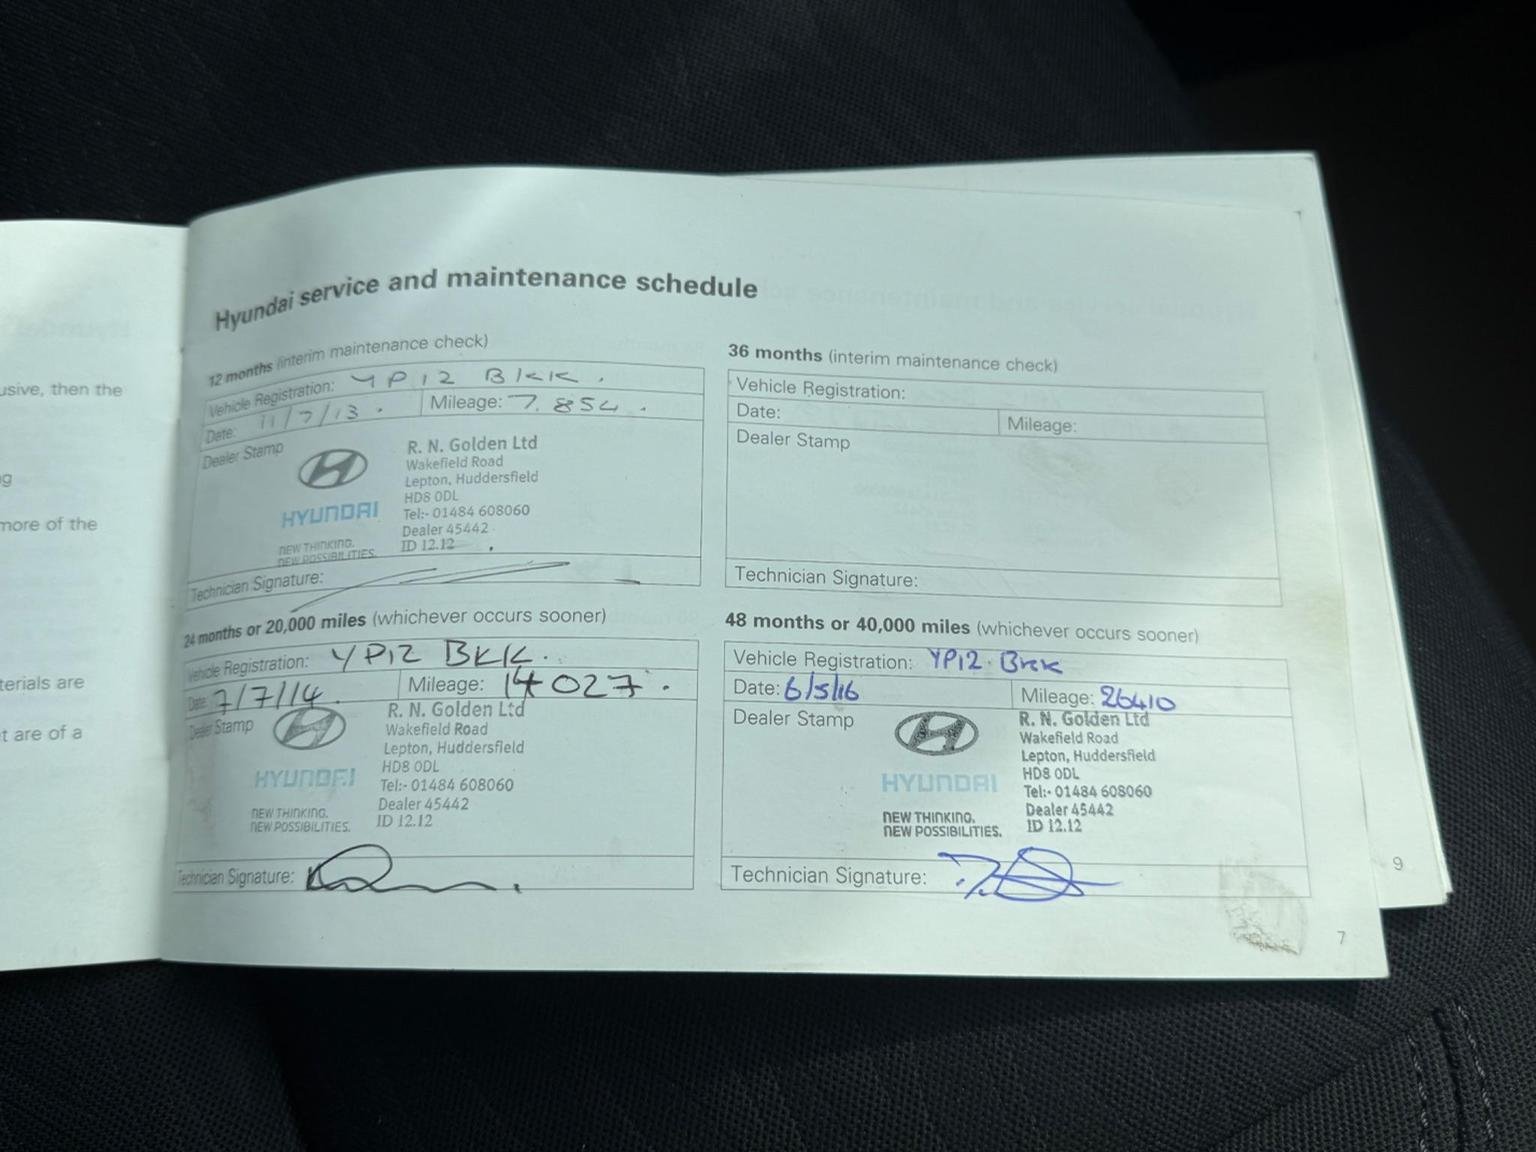 usive, then the
more of the
terials are
t are of a
Hyundai service and maintenance schedule
12 months (interim maintenance check)
Vehicle Registration: YP12 BKK.
Date: 11/7/13. Mileage: 7,854.
Dealer Stamp
HYUNDAI
NEW THINKING.
NEW POSSIBILITIES.
R. N. Golden Ltd
Wakefield Road
Lepton, Huddersfield
HD8 0DL
Tel:- 01484 608060
Dealer 45442
ID 12.12
Technician Signature:
24 months or 20,000 miles (whichever occurs sooner)
Vehicle Registration: YP12 BKK.
Date: 7/7/14. Mileage: 14027.
Dealer Stamp
HYUNDAI
NEW THINKING.
NEW POSSIBILITIES.
R. N. Golden Ltd
Wakefield Road
Lepton, Huddersfield
HD8 0DL
Tel:- 01484 608060
Dealer 45442
ID 12.12
Technician Signature:
36 months (interim maintenance check)
Vehicle Registration:
Date: Mileage:
Dealer Stamp
Technician Signature:
48 months or 40,000 miles (whichever occurs sooner)
Vehicle Registration: YP12. BKK
Date: 6/5/16 Mileage: 26410
Dealer Stamp
HYUNDAI
NEW THINKING.
NEW POSSIBILITIES.
R. N. Golden Ltd
Wakefield Road
Lepton, Huddersfield
HD8 0DL
Tel:- 01484 608060
Dealer 45442
ID 12.12
Technician Signature:
7
9